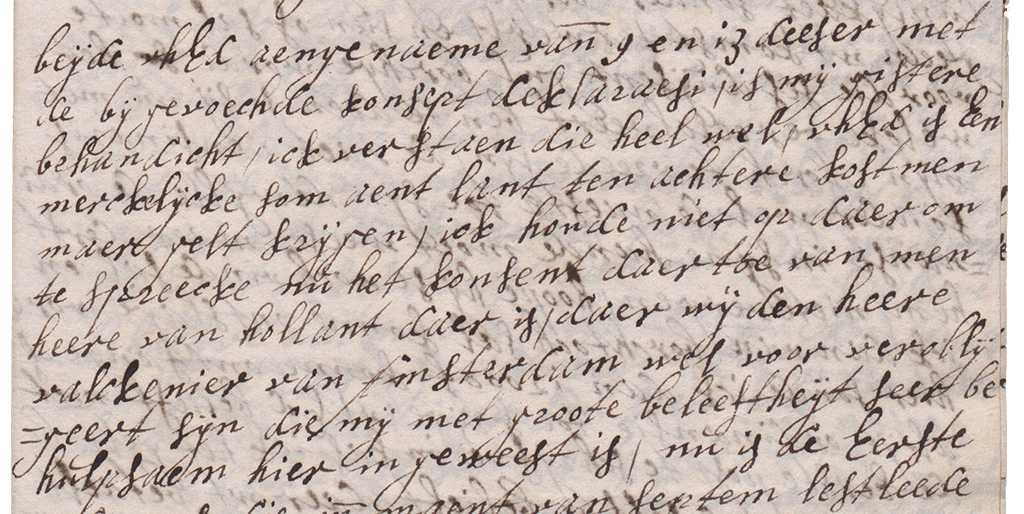 beijde uhEd aengenaeme van 9 en 13 deeser met
de bij gevoechde konsept deklaraesi, is mij gistere
behandicht, ick verstaen die heel wel, uhEd is Een
merckelijcke som aent lant ten achtere kost men
maer gelt krijgen, ick houde niet op daer om
te spreecke nu het konsent daer toe van men
heere van hollant daer is, daer wij den heere
valckenier van Amsterdam wel voor verobly
=geert sijn die mij met groote beleeftheijt seer be
hulpsaem hier in geweest is, nu is de Eerste
die in maint van septem lestleede